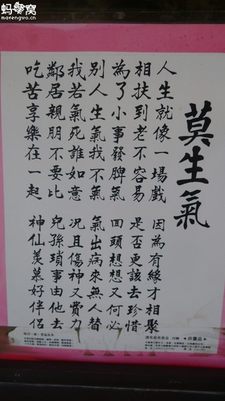 蚂蜂窝
mafengwo.cn
莫生氣
人生就像一場戲 因為有緣才相聚
相扶到老不容易 是否更該去珍惜
為了小事發脾氣 回頭想想又何必
別人生氣我不氣 氣出病來無人替
我若氣死誰如意 況且傷神又費力
鄰居親朋不要比 兒孫瑣事由他去
吃苦享樂在一起 神仙羨慕好伴侶